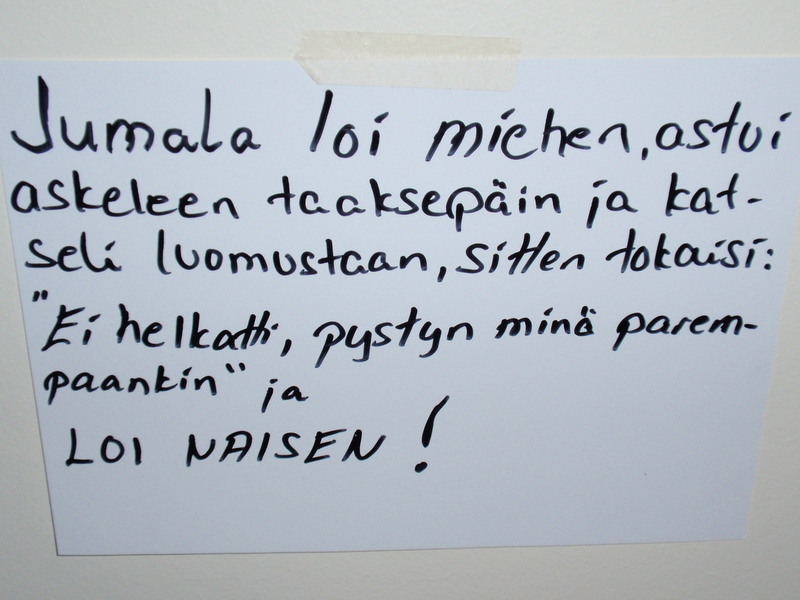 Jumala loi miehen, astui
askeleen taaksepäin ja kat-
seli luomustaan, sitten tokaisi:
"Ei helkatti, pystyn minä parem-
paankin" ja
LOI NAISEN!